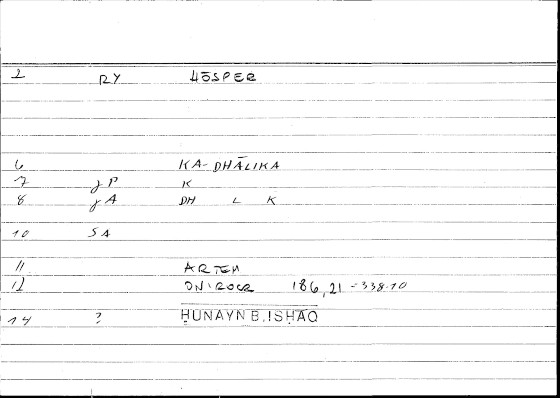 2 RY HŌSPER
6 KA-DHĀLIKA
7 γP K
8 γA DH L K
10 SA
11 ARTEM
12 ONIROCR 186,21 - 338.10
14 ? ḤUNAYN B. ISḤĀQ